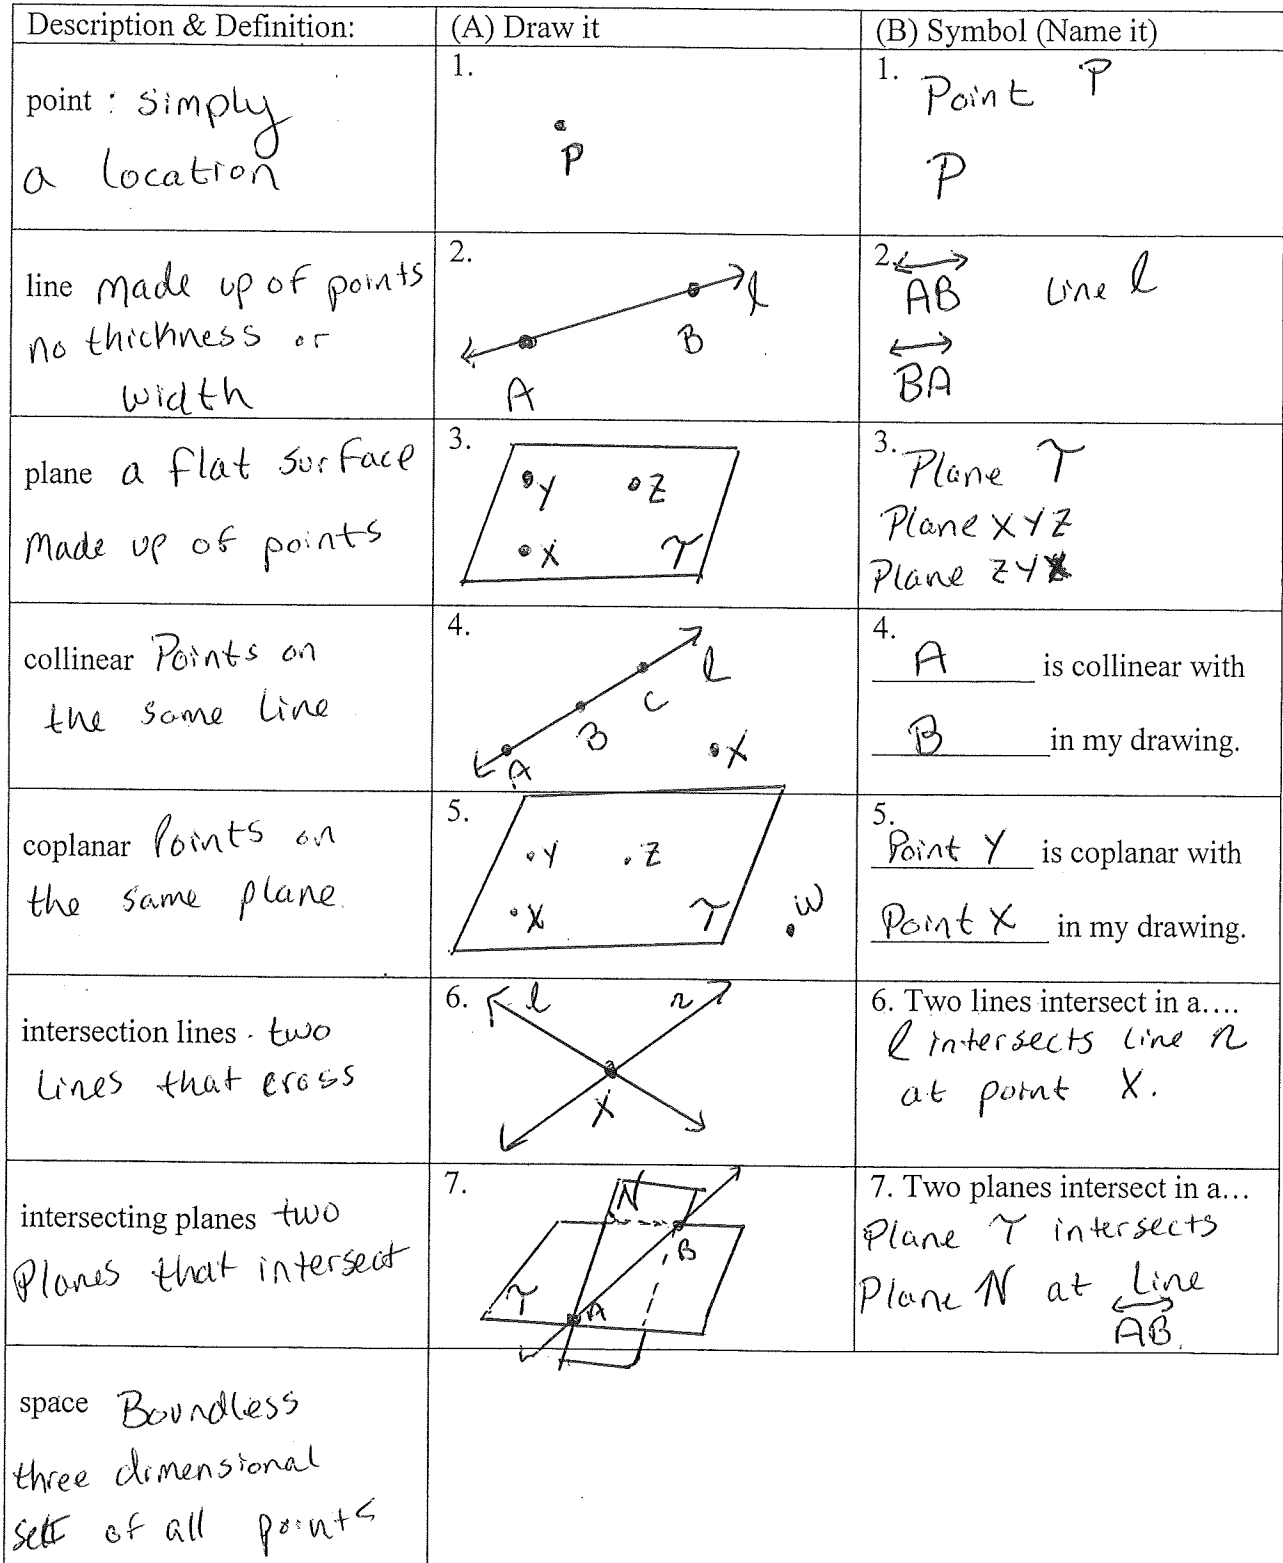 Description & Definition:
(A) Draw it
(B) Symbol (Name it)
point : simply
a location
1.
P
1. Point P
P
line made up of points
no thickness or
width
2.
l
A
B
2. AB line l
BA
plane a flat surface
made up of points
3.
Y Z
X T
3. Plane T
Plane XYZ
Plane ZYX
collinear Points on
the same line
4.
l
C
B
A
X
4.
A is collinear with
B in my drawing.
coplanar Points on
the same plane.
5.
Y Z
X T
W
5.
Point Y is coplanar with
Point X in my drawing.
intersection lines - two
lines that cross
6. l n
X
6. Two lines intersect in a....
l intersects line n
at point X.
intersecting planes two
Planes that intersect
7.
N
B
T A
7. Two planes intersect in a...
Plane T intersects
Plane N at line
AB.
space Boundless
three dimensional
set of all points